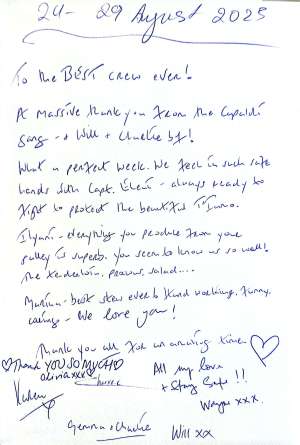 24 - 29 August 2025
To the BEST crew ever!
A massive thank you from the Capaldi
gang - + Will + Charlie bf!
What a perfect week. We feel in such safe
hands with Capt. - always ready to
fight to protect the beautiful
- everything you produce from your
galley is superb. You seem to know us so well!
The prawns, salad....
- best stew ever! Hard working, funny,
caring - We love you!
Thank you all for an amazing time
Thank YOU SO MUCH
olivia xxx
All my love
+ Stay Safe !!
Wayne xxx.
Karen
Gemma + Charlie
Will xx